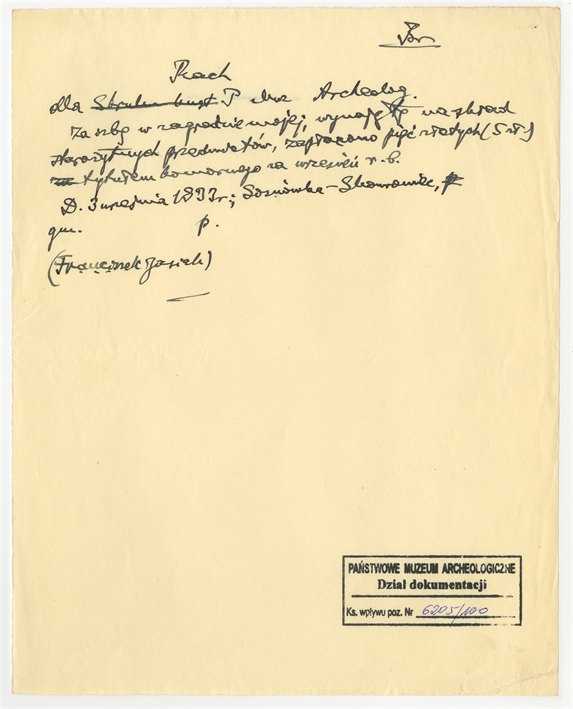 Rach
dla P. Muz Archeolog.
Za izbę w zagrodzie mojej, wynajętą na skład
starożytnych przedmiotów, zapłacono pięć złotych (5 zł)
tytułem komornego za wrzesień r. b.
D. 3 września 1937 r.; Sosnówka-Skowronek,
gm. p.
(Franciszek Jasiek)
PAŃSTWOWE MUZEUM ARCHEOLOGICZNE
Dział dokumentacji
Ks. wpływu poz. Nr 6205/100